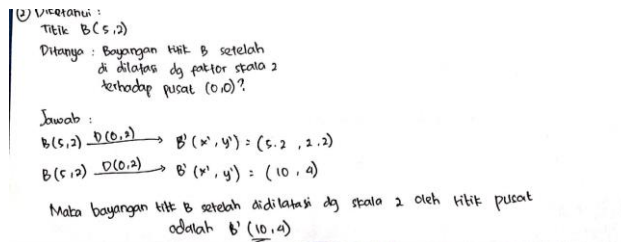 ② Diketahui :
Titik B(5,2)
Ditanya : Bayangan titik B setelah
di dilatasi dg faktor skala 2
terhadap pusat (0,0)?
Jawab :
B(5,2) D(0,2) → B'(x', y') = (5.2 , 2.2)
B(5,2) D(0,2) → B'(x', y') = (10 , 4)
Maka bayangan titik B setelah didilatasi dg skala 2 oleh titik pusat
adalah B' (10,4)